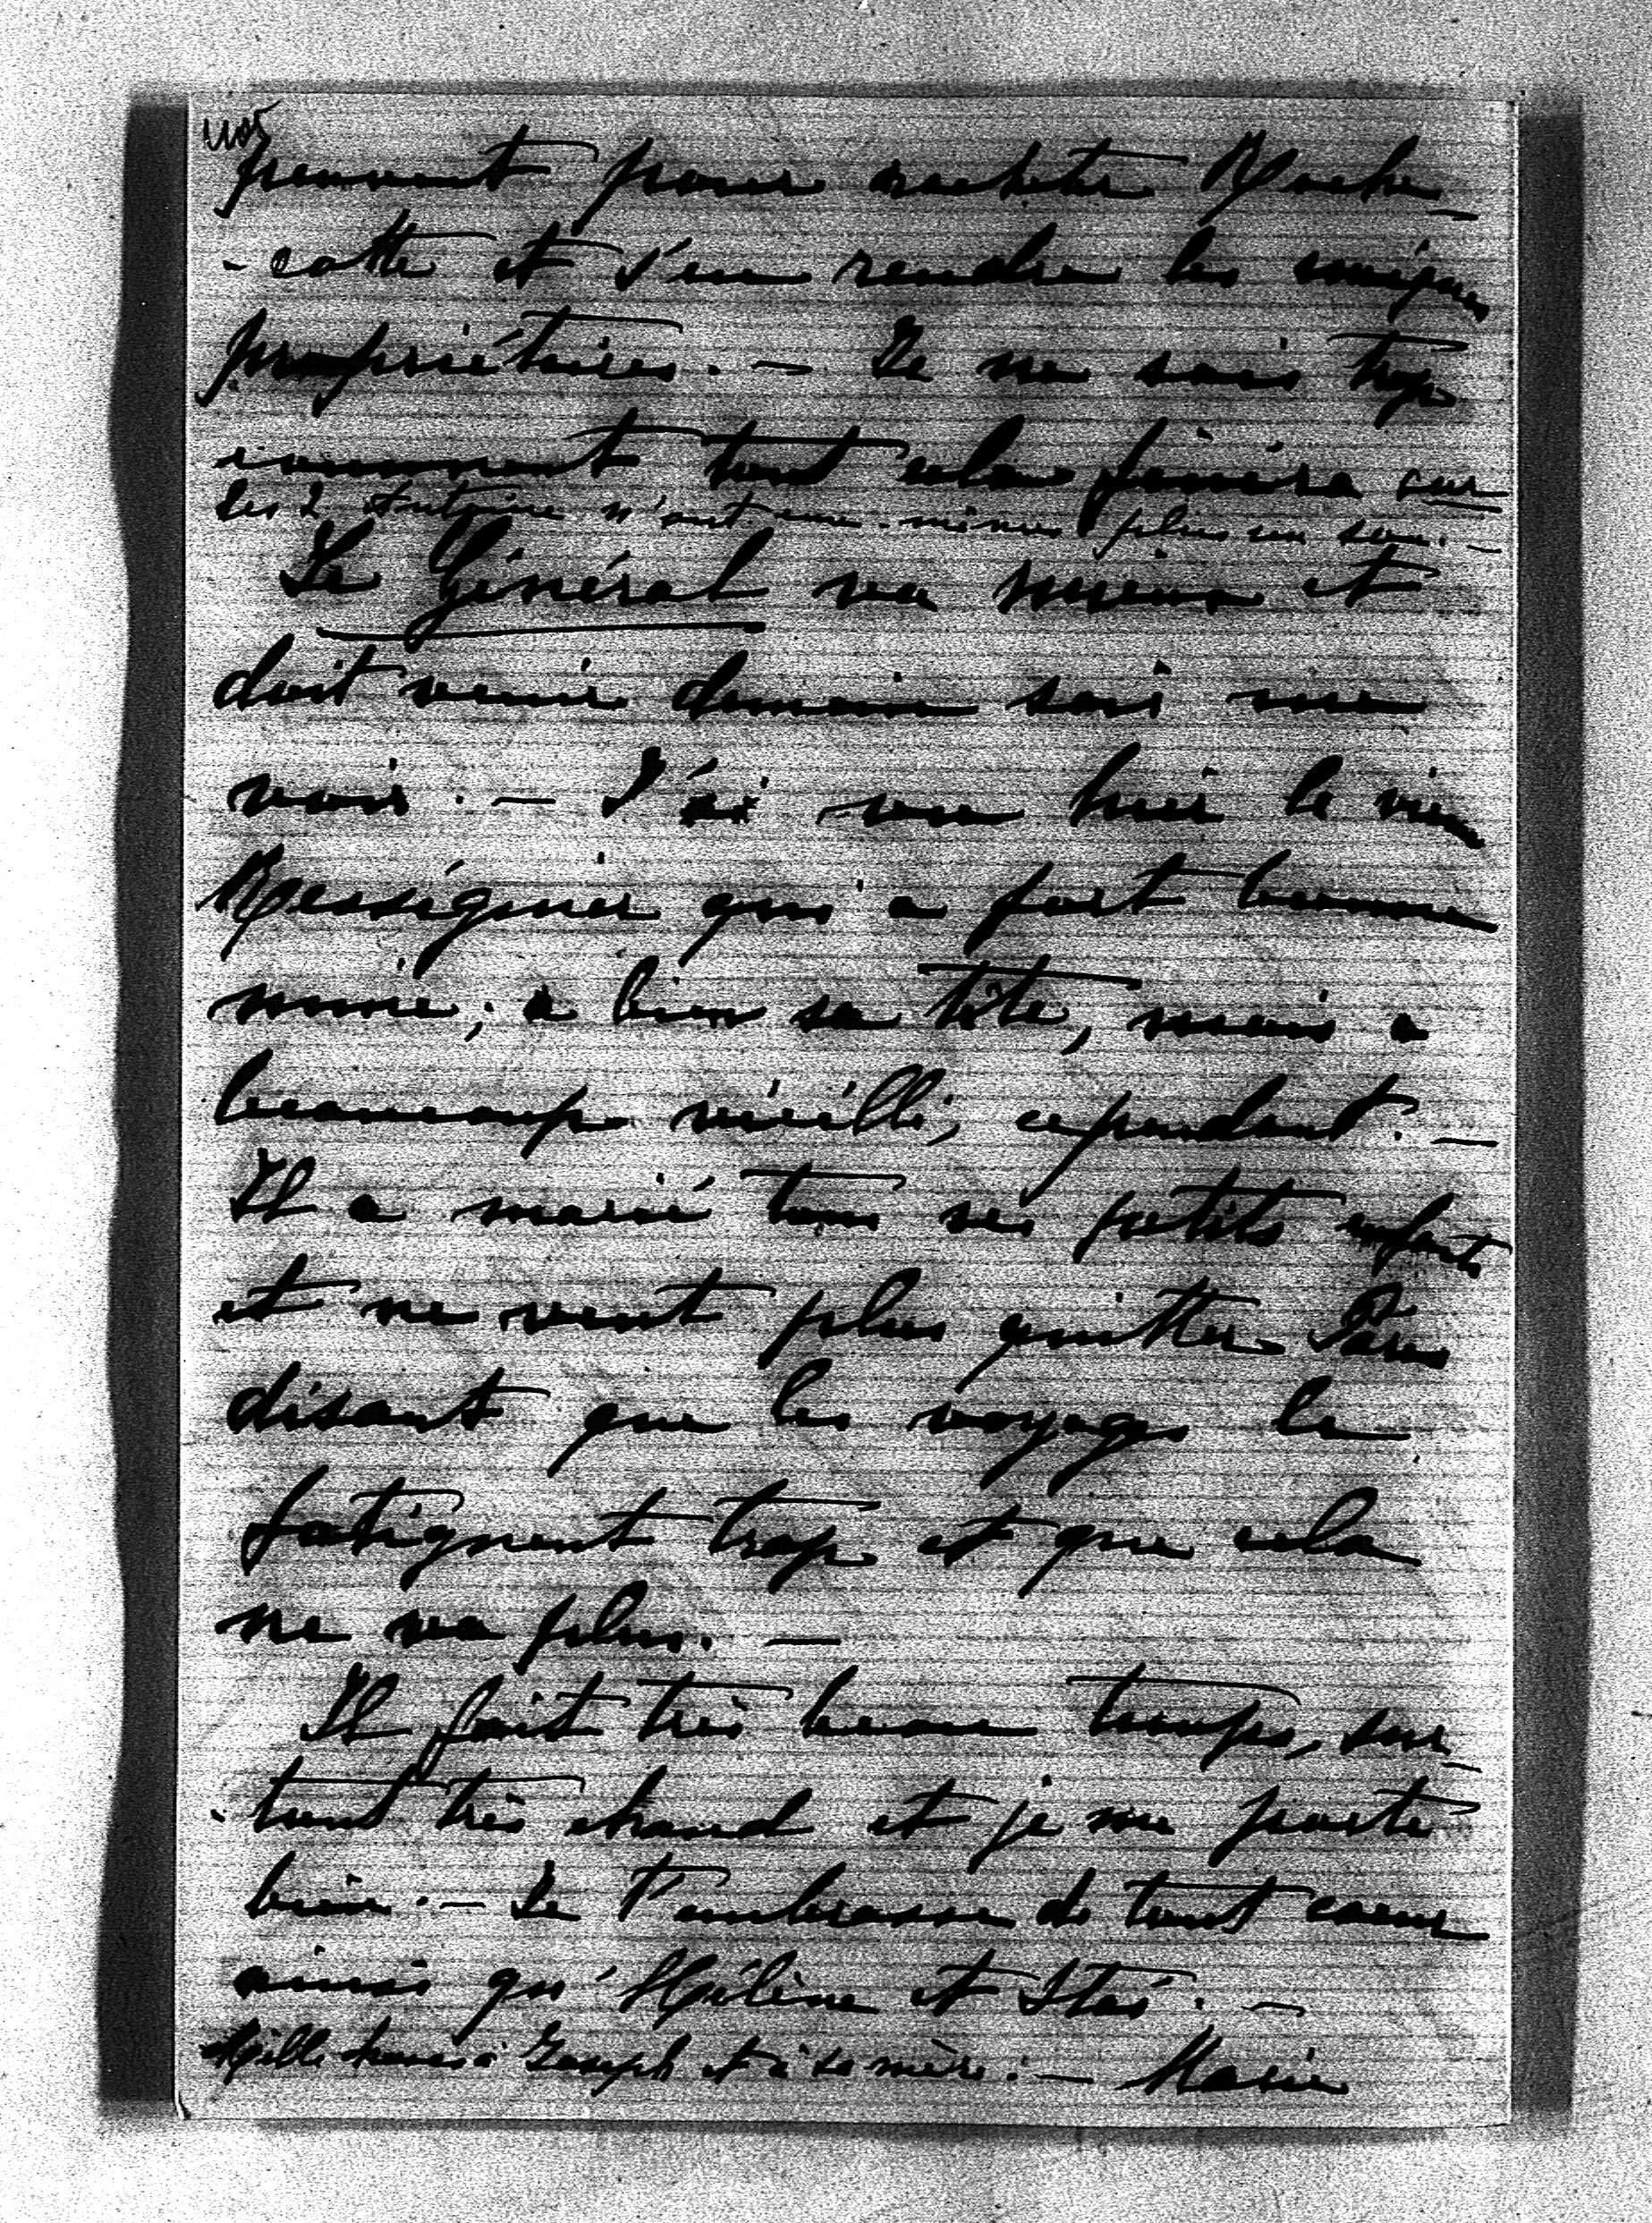 1105
peuvent pour racheter Roche-
-cotte et s'en rendre les uniques
propriétaires. — Je ne sais trop
comment tout cela finira car
les 2 Antoine n'ont eux-mêmes plus un sou. —
Le Général va mieux et
doit venir demain soir me
voir. — J'ai vu hier le vieux
Rességuier qui a fort bonne
mine, a bien sa tête, mais a
beaucoup vieilli, cependant. —
Il a marié tous ses petits enfants
et ne veut plus quitter Paris
disant que les voyages le
fatiguent trop et que cela
ne va plus. —
Il fait très beau temps, sur-
-tout très chaud et je me porte
bien. — Je t'embrasse de tout coeur
ainsi qu'Hélène et Stas. —
Mille choses à Joseph et à sa mère. — Marie